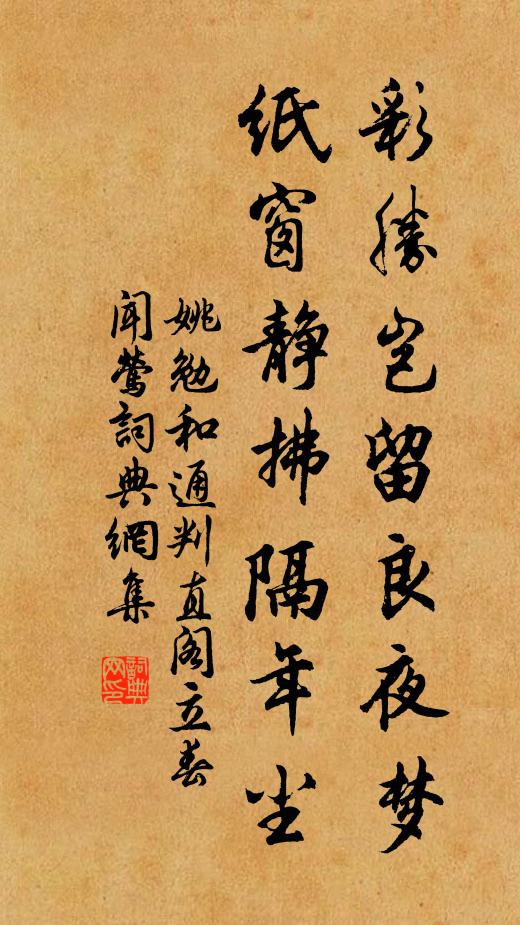 彩勝岂留良夜梦
纸窗静拂隔年尘
姚勉和通判直阁立春
闻莺词典網集
詞典网印